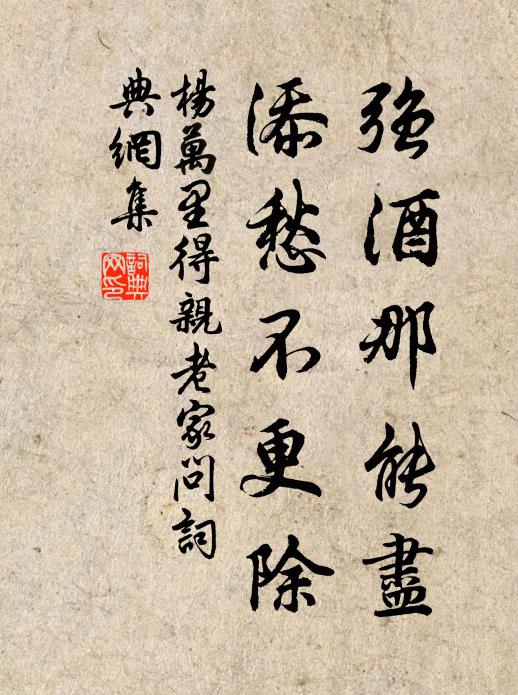 强酒那能盡
添愁不更除
楊萬里得親老家問詞
典網集
詞典網印